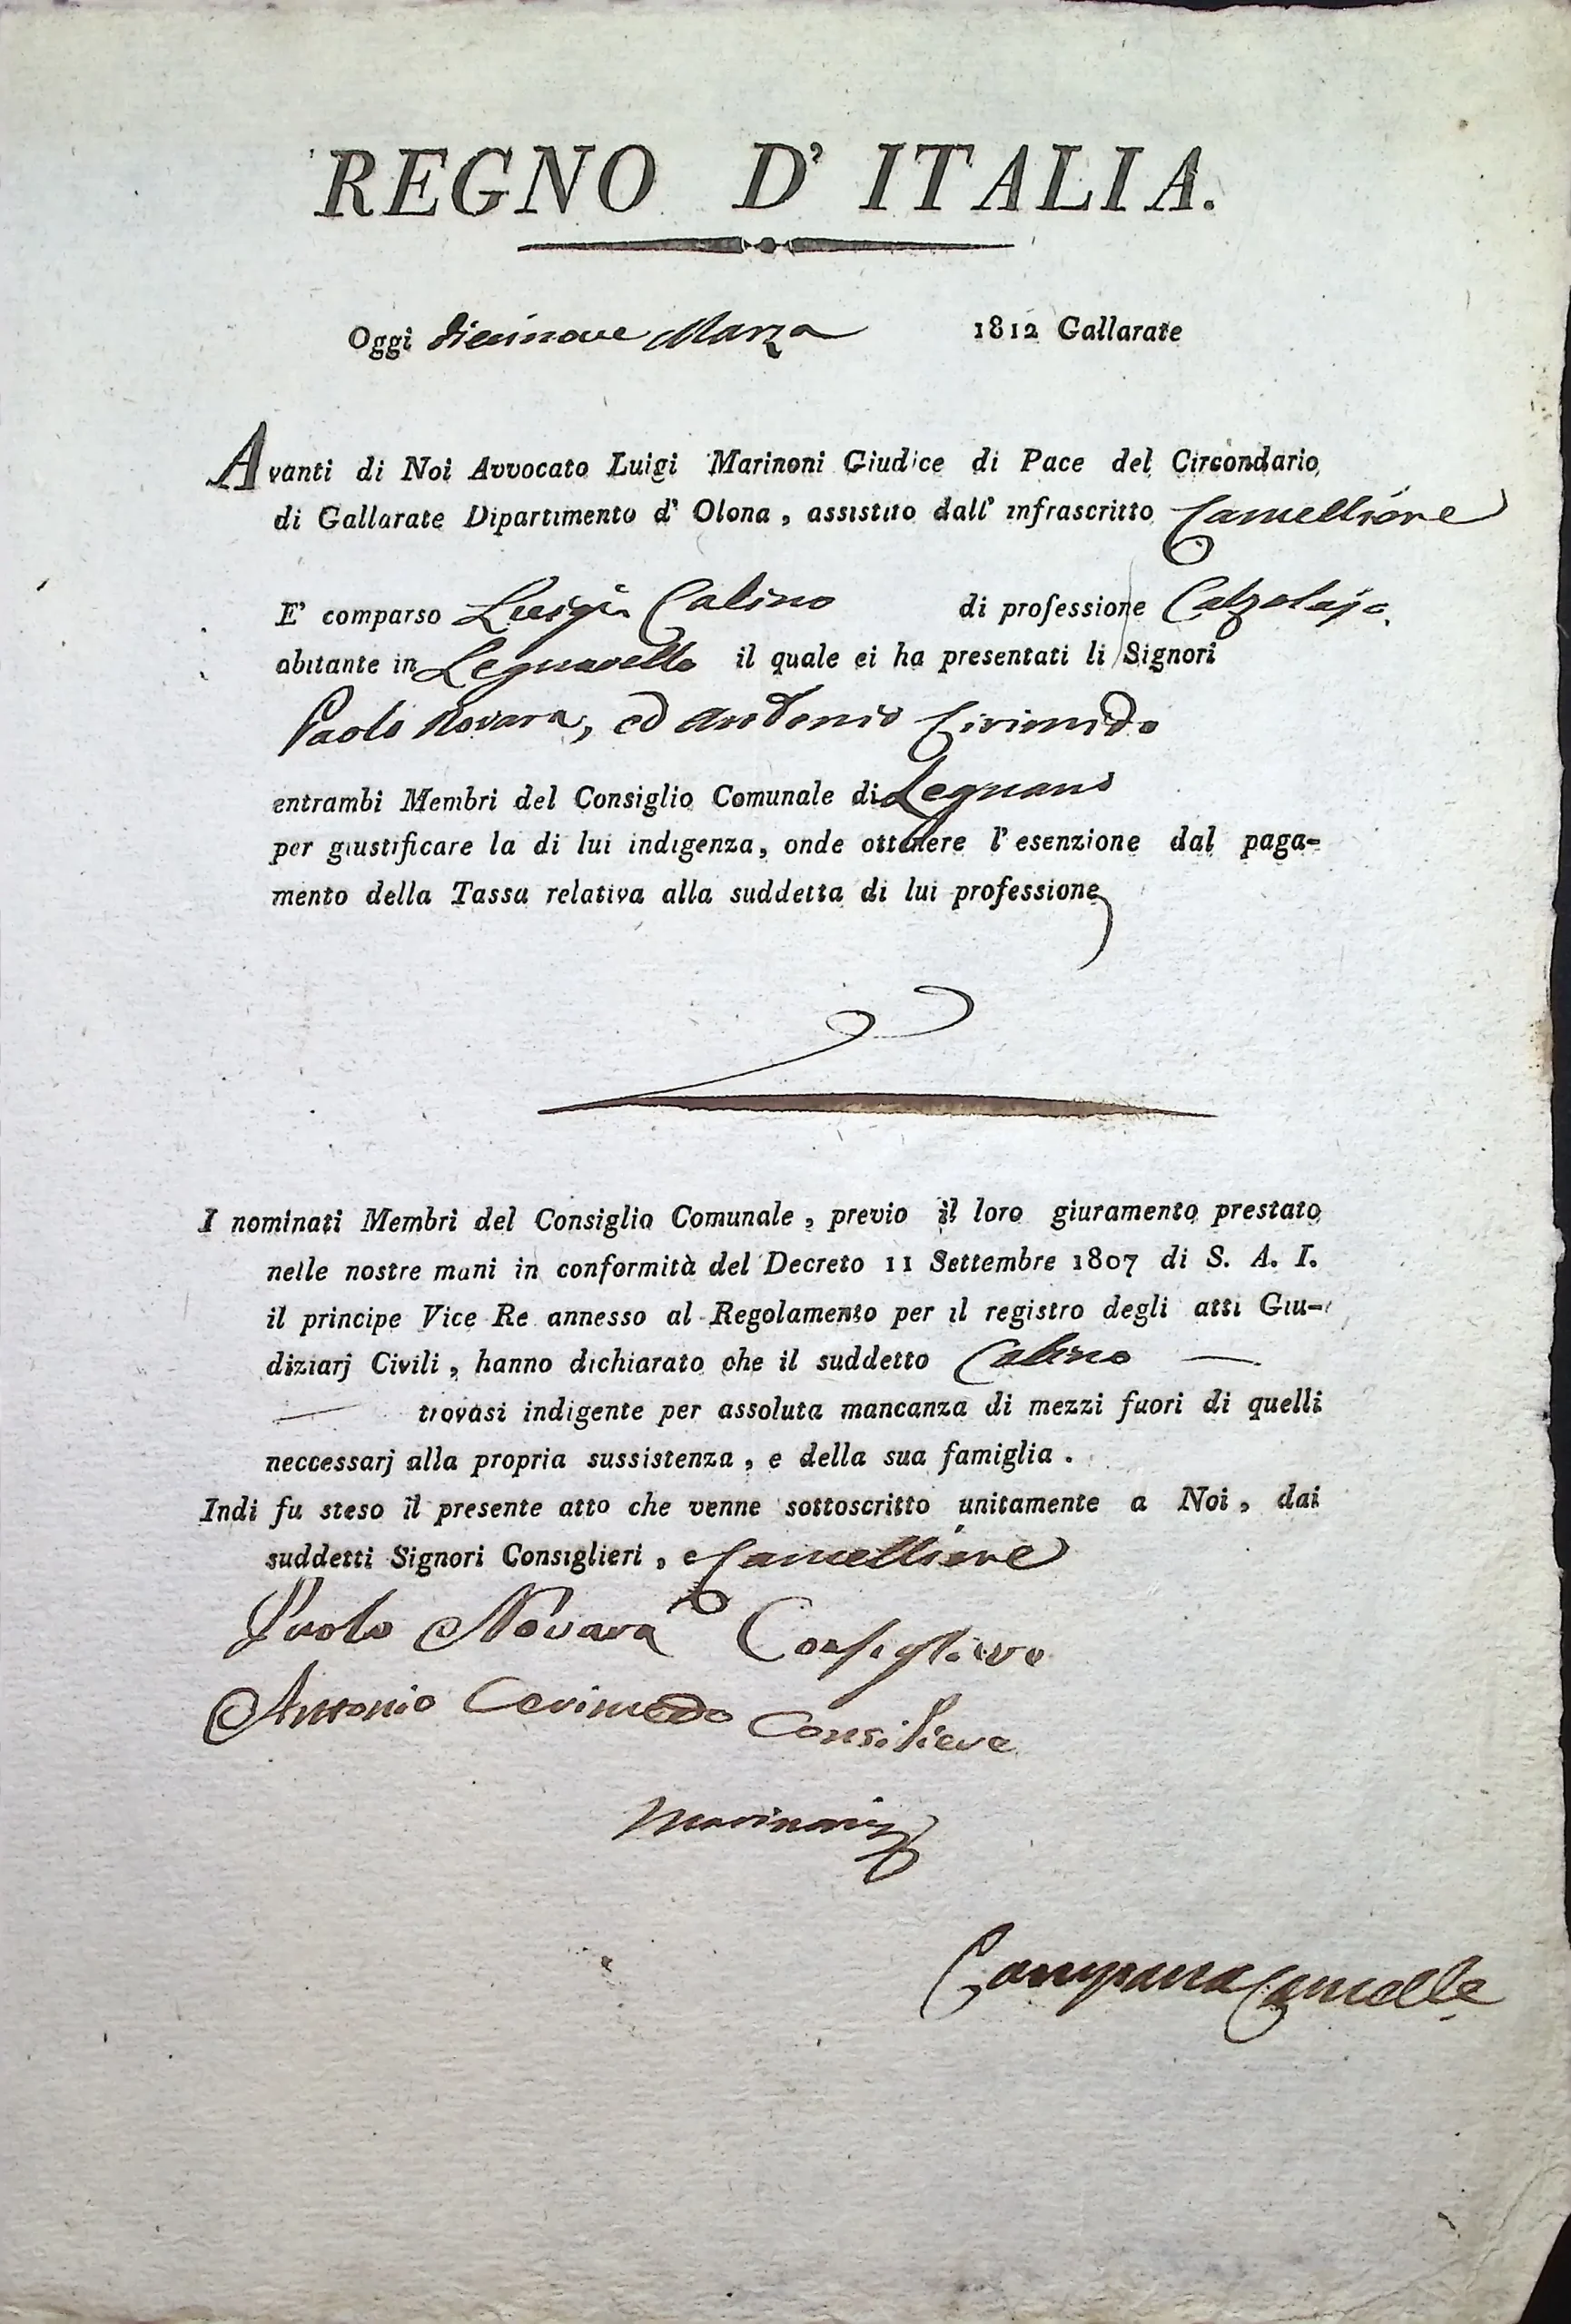 REGNO D' ITALIA.
Oggi diecinove Marzo 1812 Gallarate
Avanti di Noi Avvocato Luigi Marinoni Giudice di Pace del Circondario
di Gallarate Dipartimento d' Olona, assistito dall' infrascritto Cancelliere
E' comparso Luigi Calino di professione Calzolajo
abitante in Legnarello il quale ci ha presentati li Signori
Paolo Novara, ed Antonio Cirimido
entrambi Membri del Consiglio Comunale di Legnano
per giustificare la di lui indigenza, onde ottenere l' esenzione dal paga-
mento della Tassa relativa alla suddetta di lui professione
I nominati Membri del Consiglio Comunale, previo il loro giuramento prestato
nelle nostre mani in conformità del Decreto 11 Settembre 1807 di S. A. I.
il principe Vice Re annesso al Regolamento per il registro degli atti Giu-
diziarj Civili, hanno dichiarato che il suddetto Calino —
— trovasi indigente per assoluta mancanza di mezzi fuori di quelli
neccessarj alla propria sussistenza, e della sua famiglia.
Indi fu steso il presente atto che venne sottoscritto unitamente a Noi, dai
suddetti Signori Consiglieri, e Cancelliere
Paolo Novara Consigliere
Antonio Cerimedo Consiliere
Marinoni
Campana Cancelle